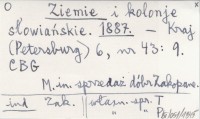 Ziemie i kolonje
słowiańskie. 1887. — Kraj
(Petersburg) 6, nr 43: 9.
CBG
M. in. sprzedaż dóbr Zakopane.
ind Zak. własn. spr. T